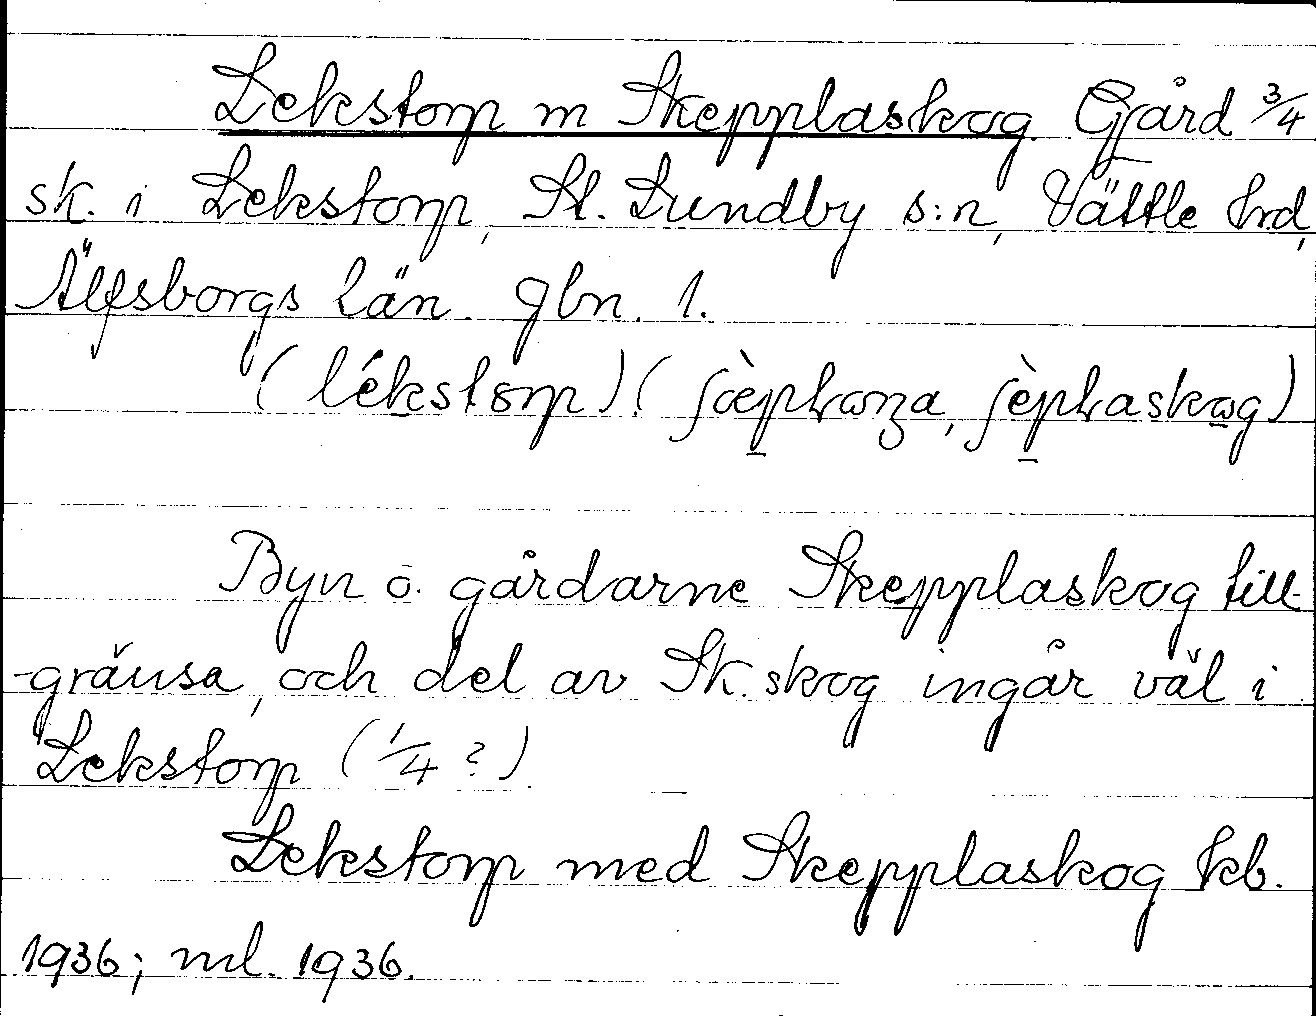 Lekstorp m Skepplaskog. Gård 3/4
sk. i Lekstorp, St. Lundby s:n, Vättle hrd,
Älfsborgs län. gbn. 1.
(lékstɷrp) (ʃæ̀pḷɷza, ʃèpḷaskɷg)
Byn o. gårdarne Skepplaskog till-
-gränsa, och del av Sk. skog ingår väl i
Lekstorp (1/4 ?)
Lekstorp med Skepplaskog kb.
1936; ml. 1936.